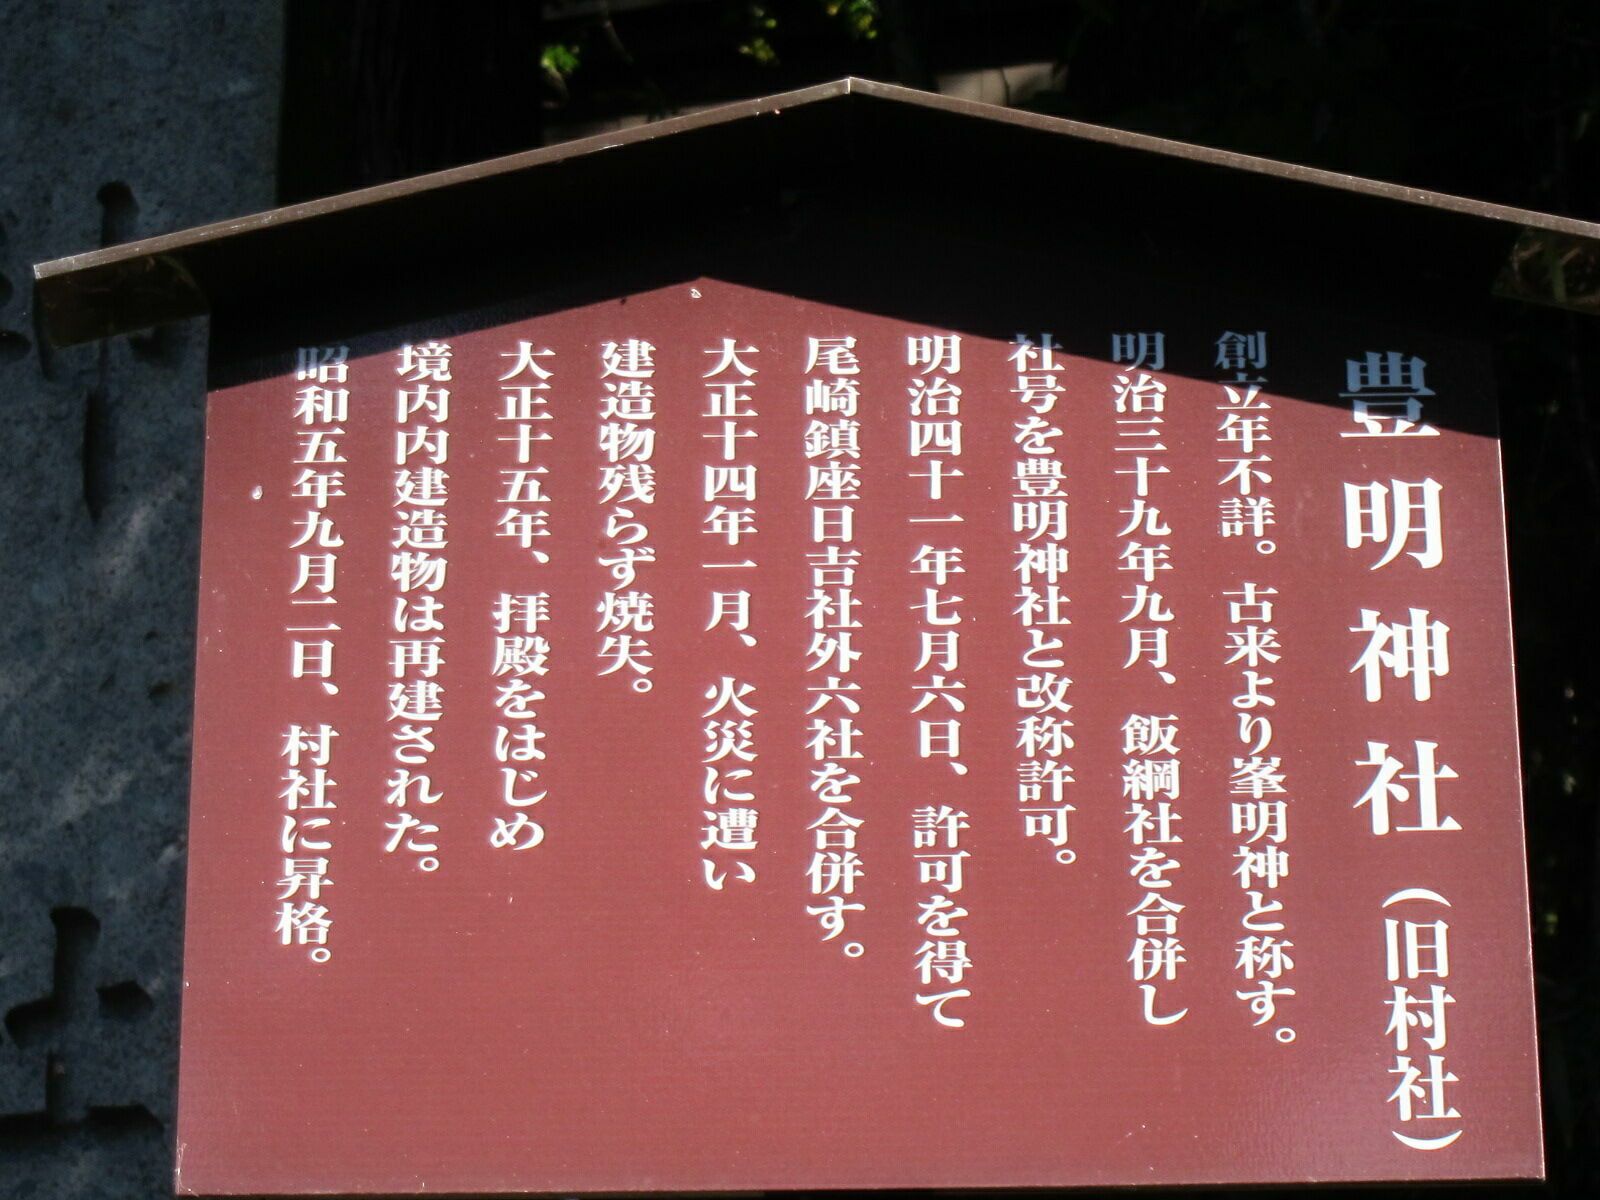 豊明神社（旧村社）
創立年不詳。古来より峯明神と称す。
明治三十九年九月、飯綱社を合併し
社号を豊明神社と改称許可。
明治四十一年七月六日、許可を得て
尾崎鎮座日吉社外六社を合併す。
大正十四年一月、火災に遭い
建造物残らず焼失。
大正十五年、拝殿をはじめ
境内内建造物は再建された。
昭和五年九月二日、村社に昇格。